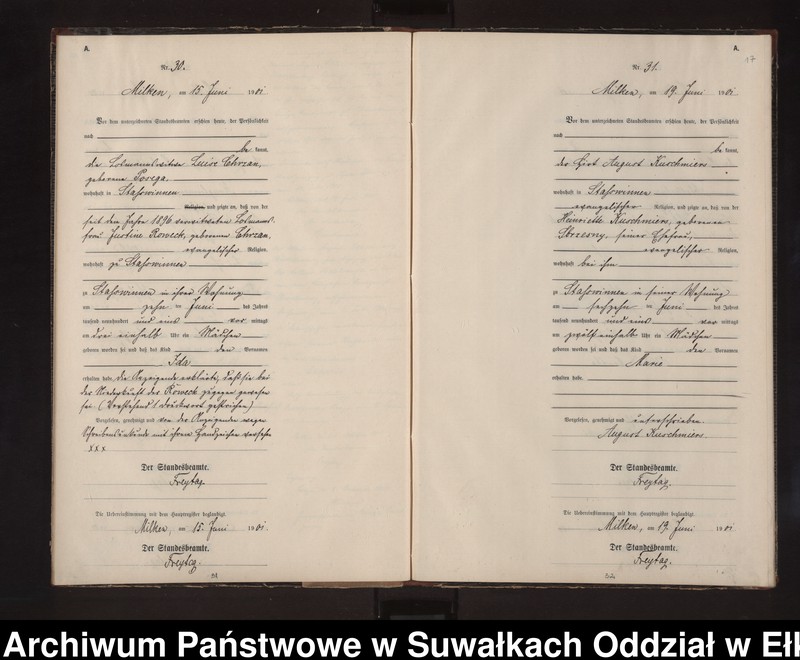 A.
Nr. 30.
Milken, am 15. Juni 1901
Vor dem unterzeichneten Standesbeamten erschien heute, der Persönlichkeit
nach
be kannt,
die Losmannswitwe Luise Chrzan,
geborene
wohnhaft in Stassowinnen
Religion, und zeigte an, daß von der
seit dem Jahre 1896 verwitweten Losmanns-
frau Justine Roweck, geborenen Chrzan,
evangelischer Religion,
wohnhaft zu Stassowinnen
zu Stassowinnen in ihrer Wohnung
am zehn ten Juni des Jahres
tausend neunhundert und eins vor mittags
um drei einhalb Uhr ein Mädchen
geboren worden sei und daß das Kind den Vornamen
Ida
erhalten habe. die Anzeigende erklärte, daß sie bei
der Niederkunft der Roweck zugegen gewesen
sei. (Vorstehend 1 Druckwort gestrichen)
Vorgelesen, genehmigt und von der Anzeigenden wegen
Schreibensunkunde mit ihrem Handzeichen versehen
xxx
Der Standesbeamte.
Freytag.
Die Uebereinstimmung mit dem Hauptregister beglaubigt
Milken, am 15. Juni 1901.
Der Standesbeamte.
Freytag.
31
A.
17
Nr. 31.
Milken, am 19. Juni 1901
Vor dem unterzeichneten Standesbeamten erschien heute, der Persönlichkeit
nach
be kannt,
der Hirt August Kuschmierz
wohnhaft in Stassowinnen
evangelischer Religion, und zeigte an, daß von der
Henriette Kuschmierz, geborenen
Strzesny, seiner Ehefrau,
evangelischer Religion,
wohnhaft bei ihm
zu Stassowinnen in seiner Wohnung
am sechzehn ten Juni des Jahres
tausend neunhundert und eins vor mittags
um zwölf einhalb Uhr ein Mädchen
geboren worden sei und daß das Kind den Vornamen
Marie
erhalten habe.
Vorgelesen, genehmigt und unterschrieben.
August Kuschmierz
Der Standesbeamte.
Freytag.
Die Uebereinstimmung mit dem Hauptregister beglaubigt
Milken, am 19. Juni 1901
Der Standesbeamte.
Freytag.
32
Archiwum Państwowe w Suwałkach Oddział w Ełk